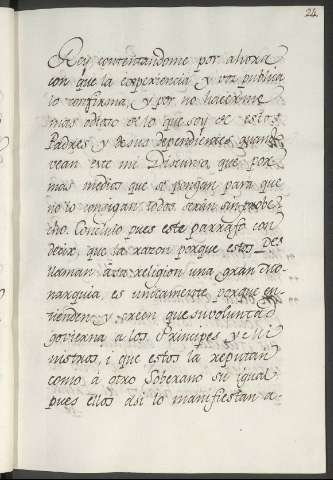 24.
Rey contentandome por ahora
con que la experiencia y voz publica
lo confirma, y por no hacerme
mas odioso de lo que soy de estos
Padres y de sus dependientes quando
vean este mi Discurso, que por
mas medios que se pongan para que
no lo consigan todos serán sin probe
cho. Concluio pues este parrafo con
dezir, que la razon porque estos
llaman à su religion una gran mo-
narquia, es unicamente porque en-
tienden y creen que su voluntad
govierna a los Principes y Mi
nistros, i que estos la reputan
como à otro Soberano su igual
pues ellos asi lo manifiestan a-